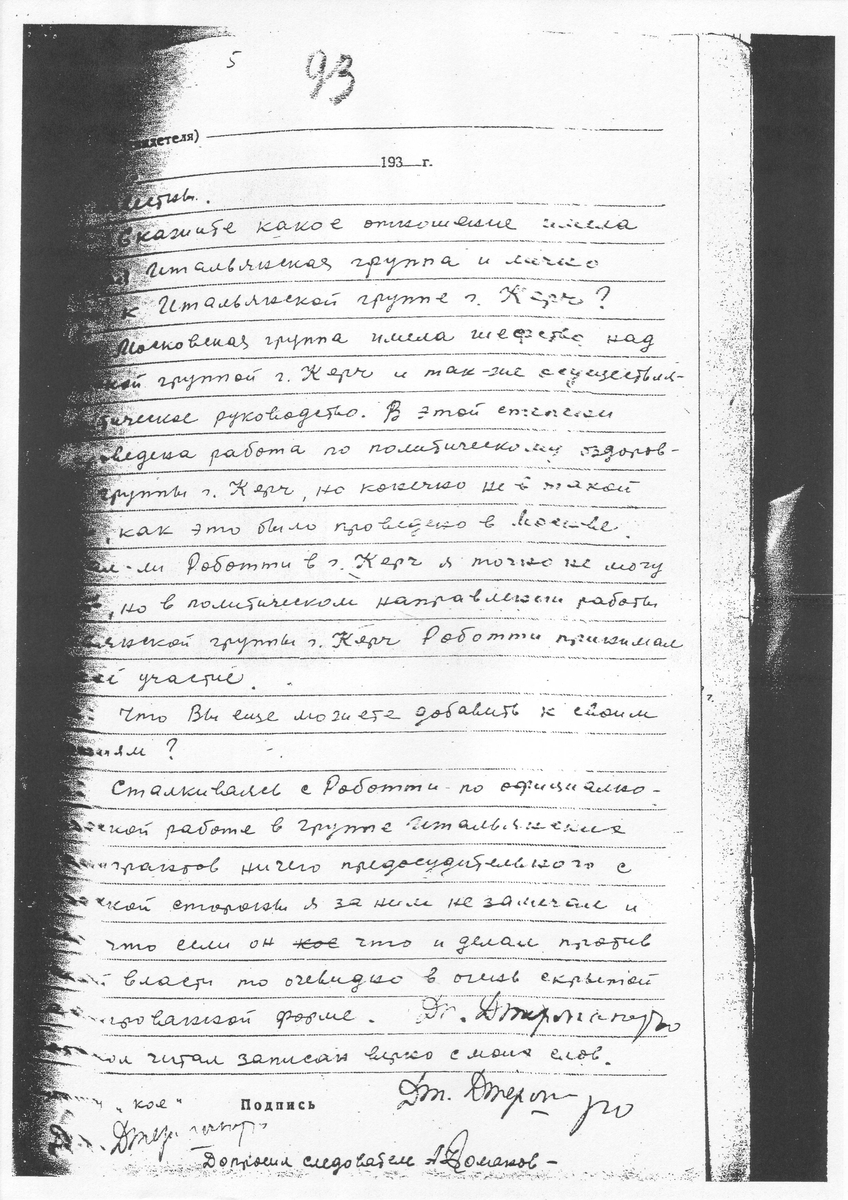 5
93
идетеля)
193 г.
Скажите какое отношение имела
Итальянская группа и лично
к Итальянской группе г. Керч?
Московская группа имела шефство над
ной группой г. Керч и так-же осуществля-
тическое руководство. В этой степени
оведена работа по политическому оздоров-
группы г. Керч, но конечно не в такой
, как это было проведено в Москве.
ал-ли Роботти в г. Керч я точно не могу
, но в политическом направлении работы
ьянской группы г. Керч Роботти принимал
участие.
Что Вы еще можете добавить к своим
ям?
Сталкиваясь с Роботти по официално-
ской работе в группе Итальянских
грантов ничего предосудительного с
кой стороны я за ним не замечал и
что если он кое что и делал против
й власти то очевидно в очень скрытой
рованной форме.
читал записан верно с моих слов.
„кое"
Подпись
Допросил следователь